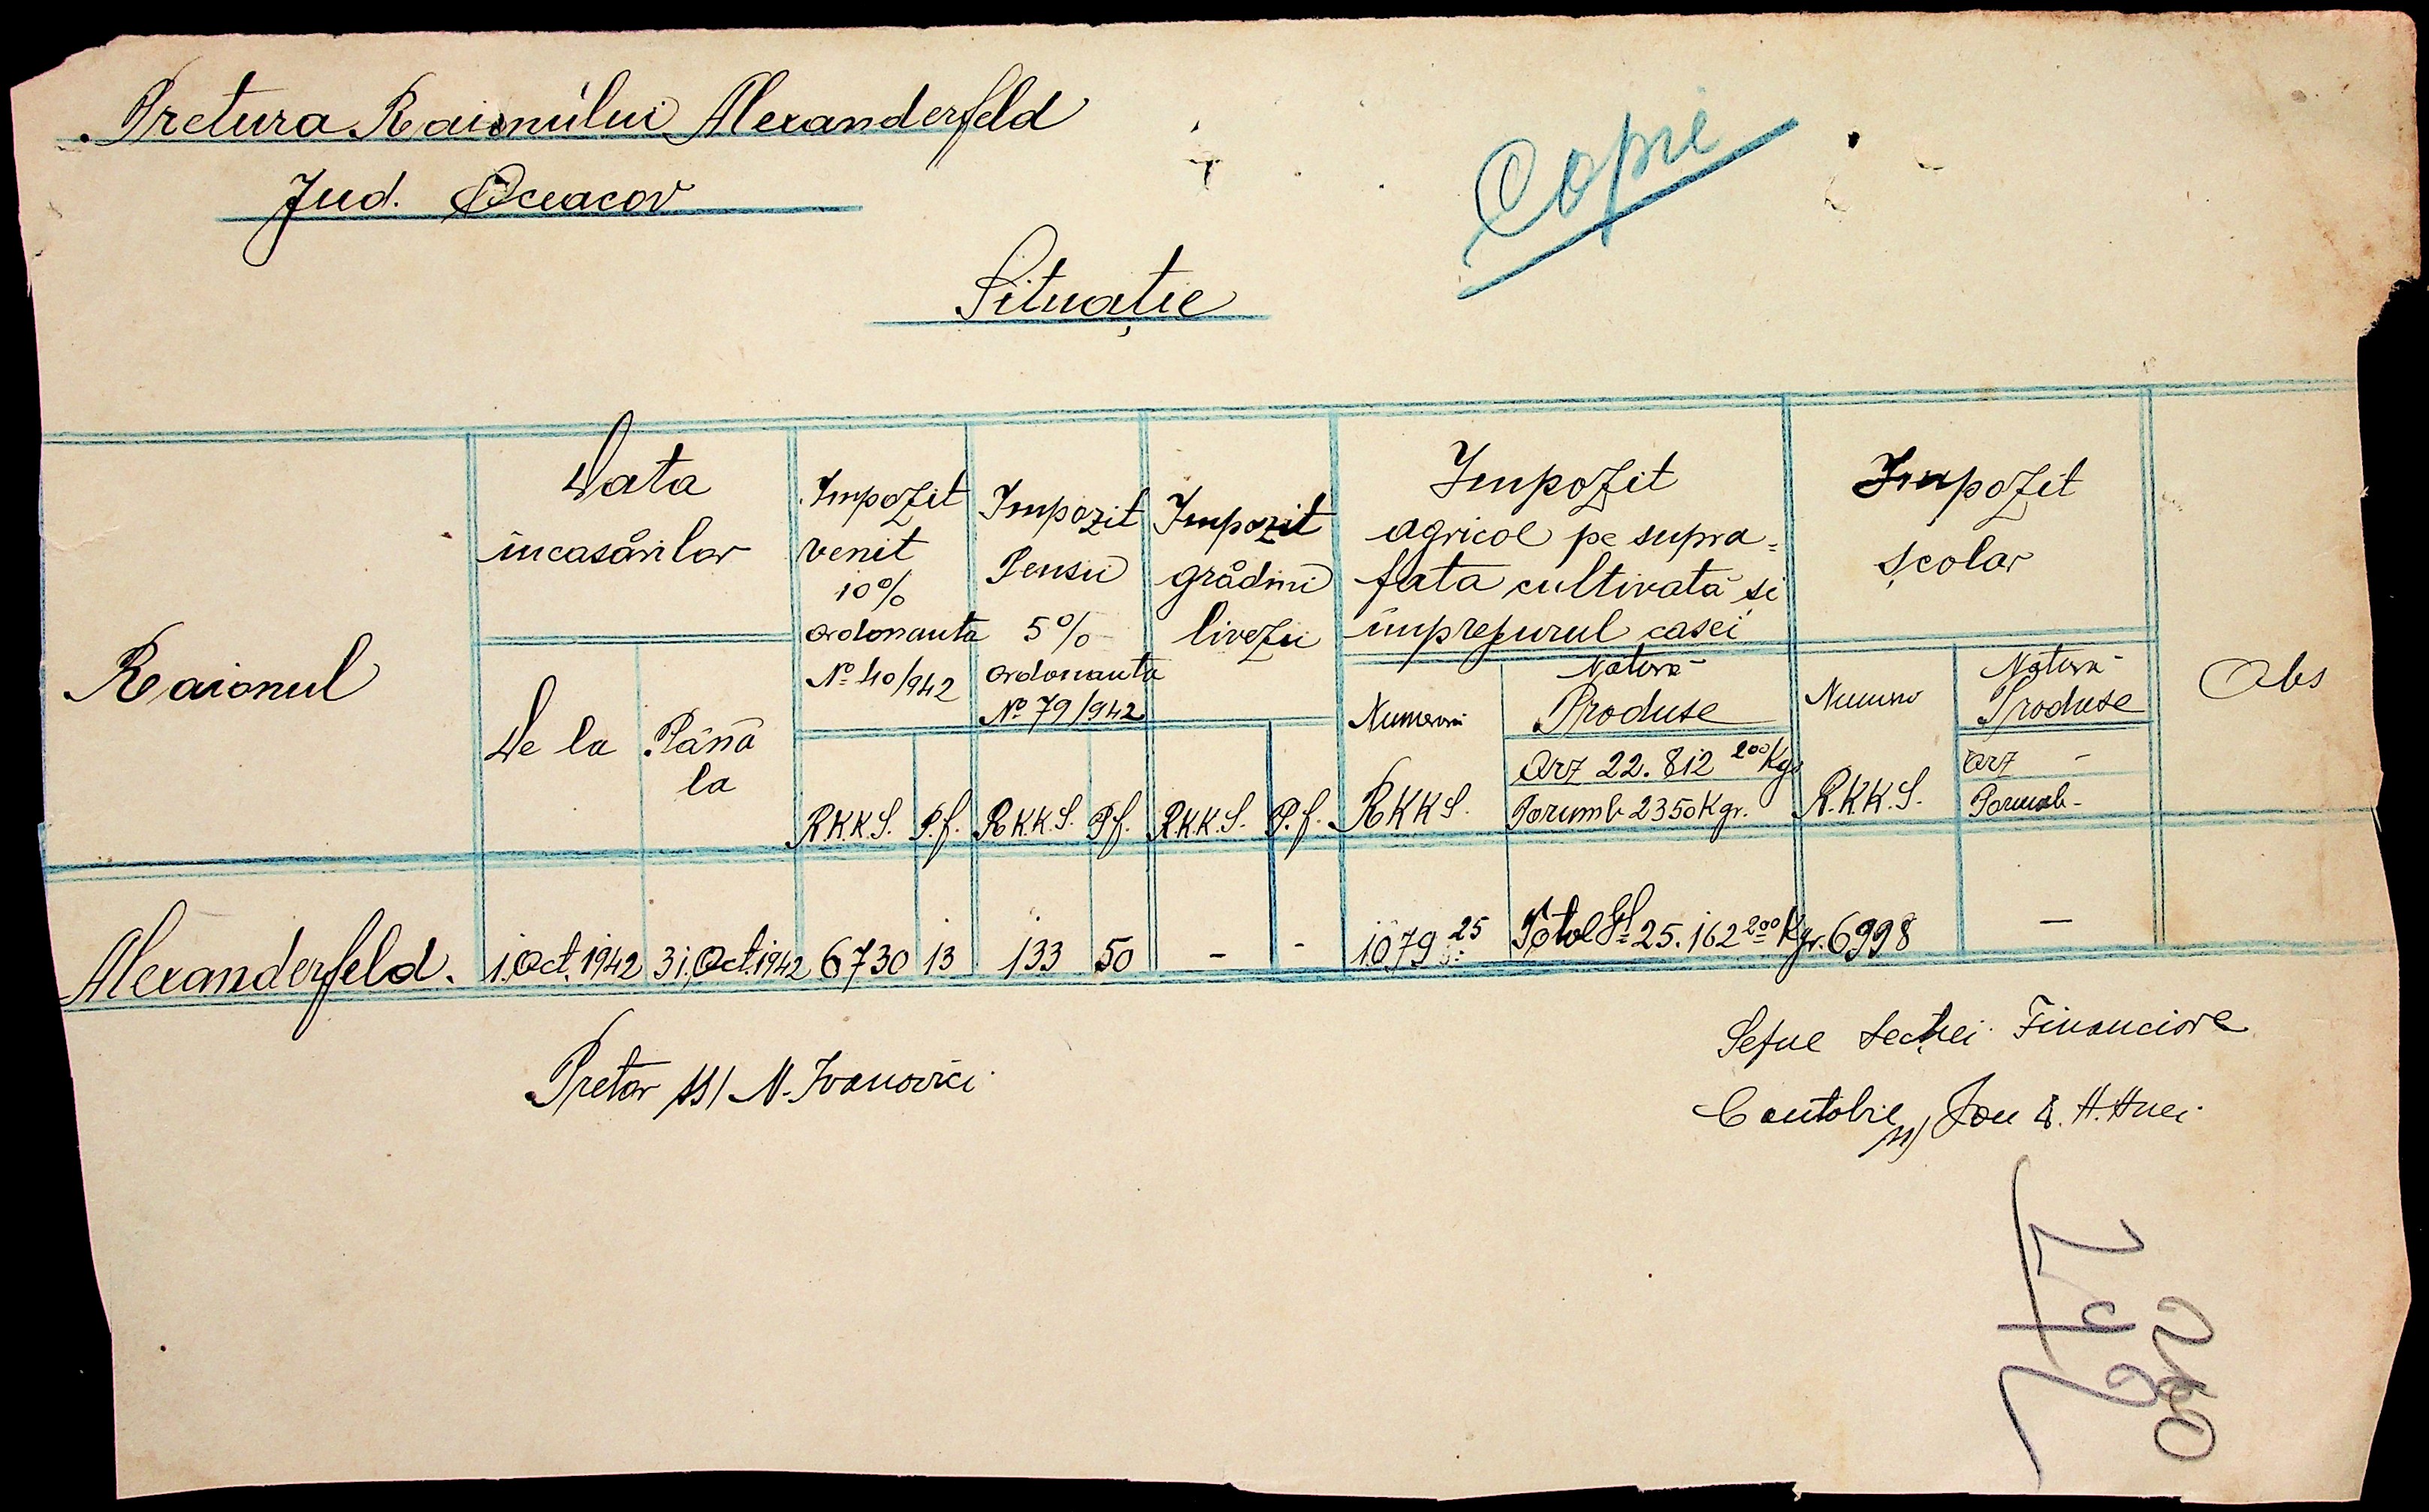 Pretura Raionului Alexanderfeld
Jud. Oceacov
Copie
Situaţie
Raionul
Data
încasărilor
De la
Până
la
Impozit
venit
10%
ordonanta
No 40/942
R.K.K.S. P.f.
Impozit
Pensii
5%
ordonanta
No 79/942
R.K.K.S. P.f.
Impozit
grădini
livezii
R.K.K.S. P.f.
Impozit
agricol pe supra=
fata cultivată si
împrejurul casei
Numerar
RKKS.
Natură
Produse
Orz 22.812 200 Kgr
Porumb 2350 Kgr.
Impozit
şcolar
Numerar
R.K.K.S.
Natură
Produse
Orz -
Porumb -
Obs
Alexanderfeld. 1.Oct.1942 31.Oct.1942 6730 13 133 50 - - 1079.25 Total 25.162 200 Kgr. 6998 —
Pretor ss/ N. Ivanovici
Seful Secţiei Financiare
Contabil ss/ Ion